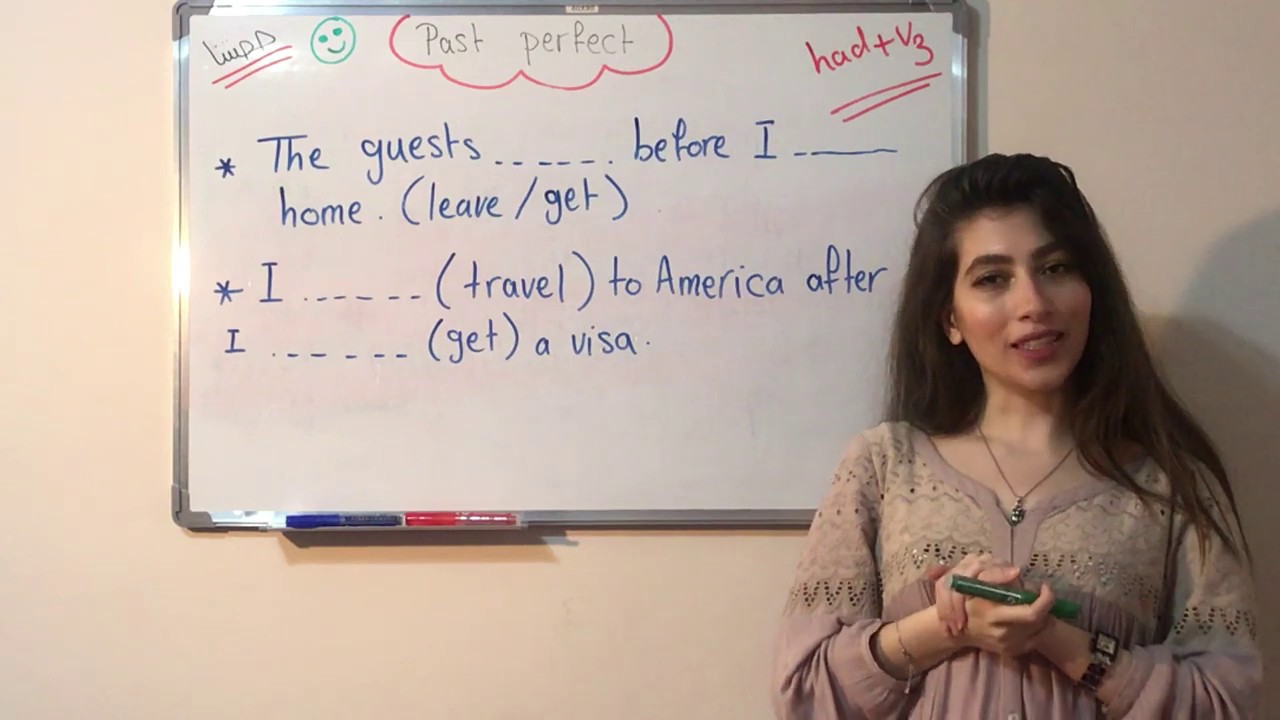 Past perfect
had+V3
* The guests ...... before I ____
home. (leave/get)
* I ...... (travel) to America after
I ...... (get) a visa.